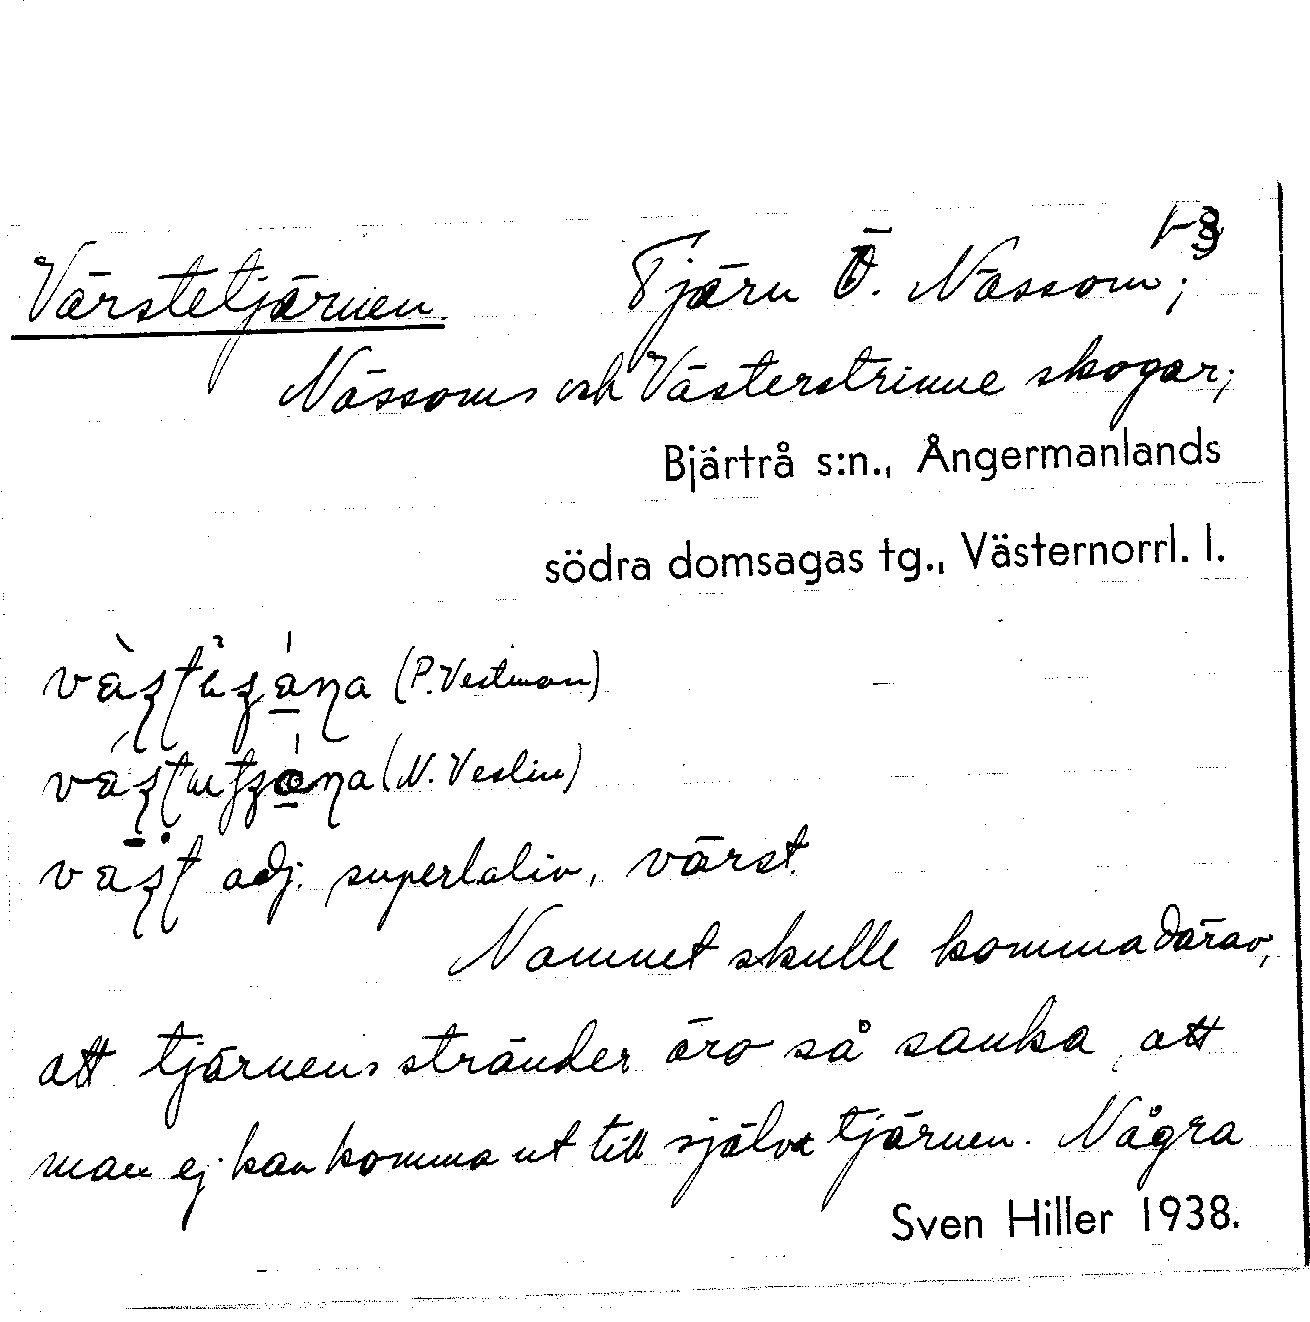 1-8
Värstetjärnen. Tjärn Ö. Nässom;
Nässoms och Västerstrinne skogar;
Bjärtrå s:n., Ångermanlands
södra domsagas tg., Västernorrl. l.
(P. Vestman)
(N. Veslin)
adj. superlativ, värst.
Namnet skulle komma därav,
att tjärnens stränder äro så sanka, att
man ej kan komma ut till själva tjärnen. Några
Sven Hiller 1938.